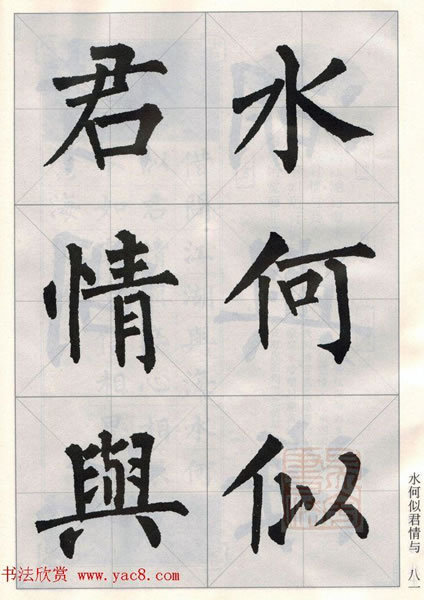 水何似
君情與
水何似君情与 八一
书法欣赏 www.yac8.com